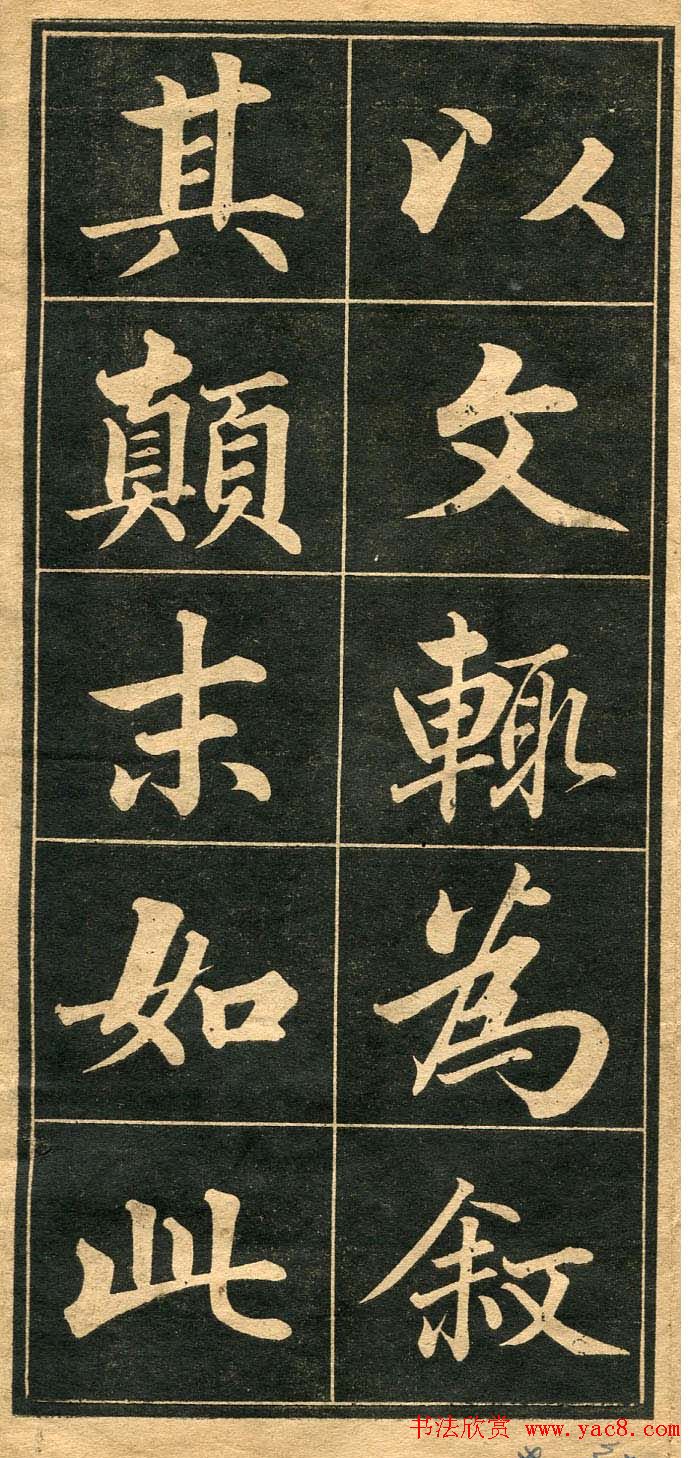 以文輙為敘
其顛末如此
书法欣赏 www.yac8.com